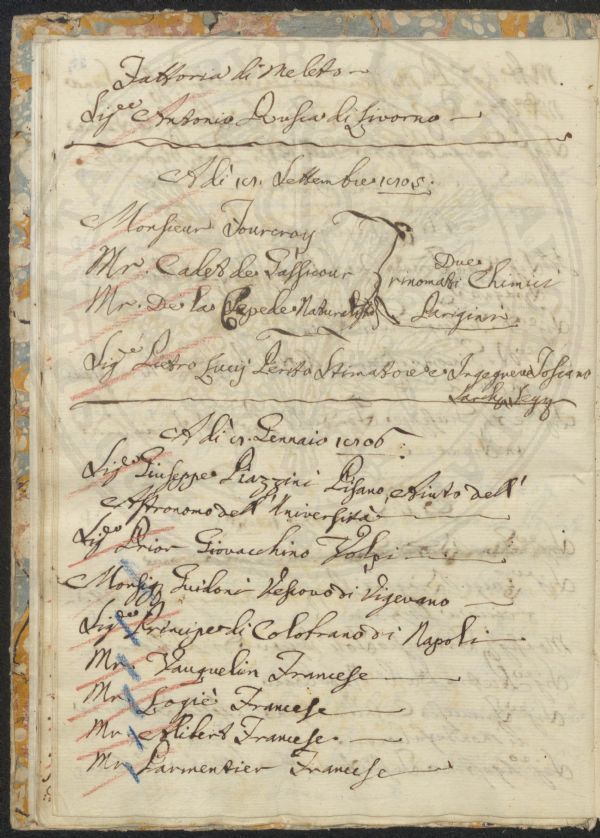 Fattoria di Meleto
Sig.re Antonio Rusca di Livorno
A dì 15. Settembre 1805.
Monsieur Fourcroy
Mr. Calet de Gassicour
Mr. De la Cepede Naturalista
Due
rinomati Chimici
Parigini
Sig.e Pietro Lucij Perito Stimatore e Ingegnere Toscano
A dì 15. Gennaio 1806
Sig.re Giuseppe Piazzini Pisano, Aiuto dell'
Astronomo dell'Università
Sig.re Prior Giovacchino Volpi
Monsig. Guidoni Vescovo di Vigevano
Sig.re Principe di Colobrano di Napoli
Mr. Vauquelin Francese
Mr. Logiè Francese
Mr. Alibert Francese
Mr. Parmentier Francese